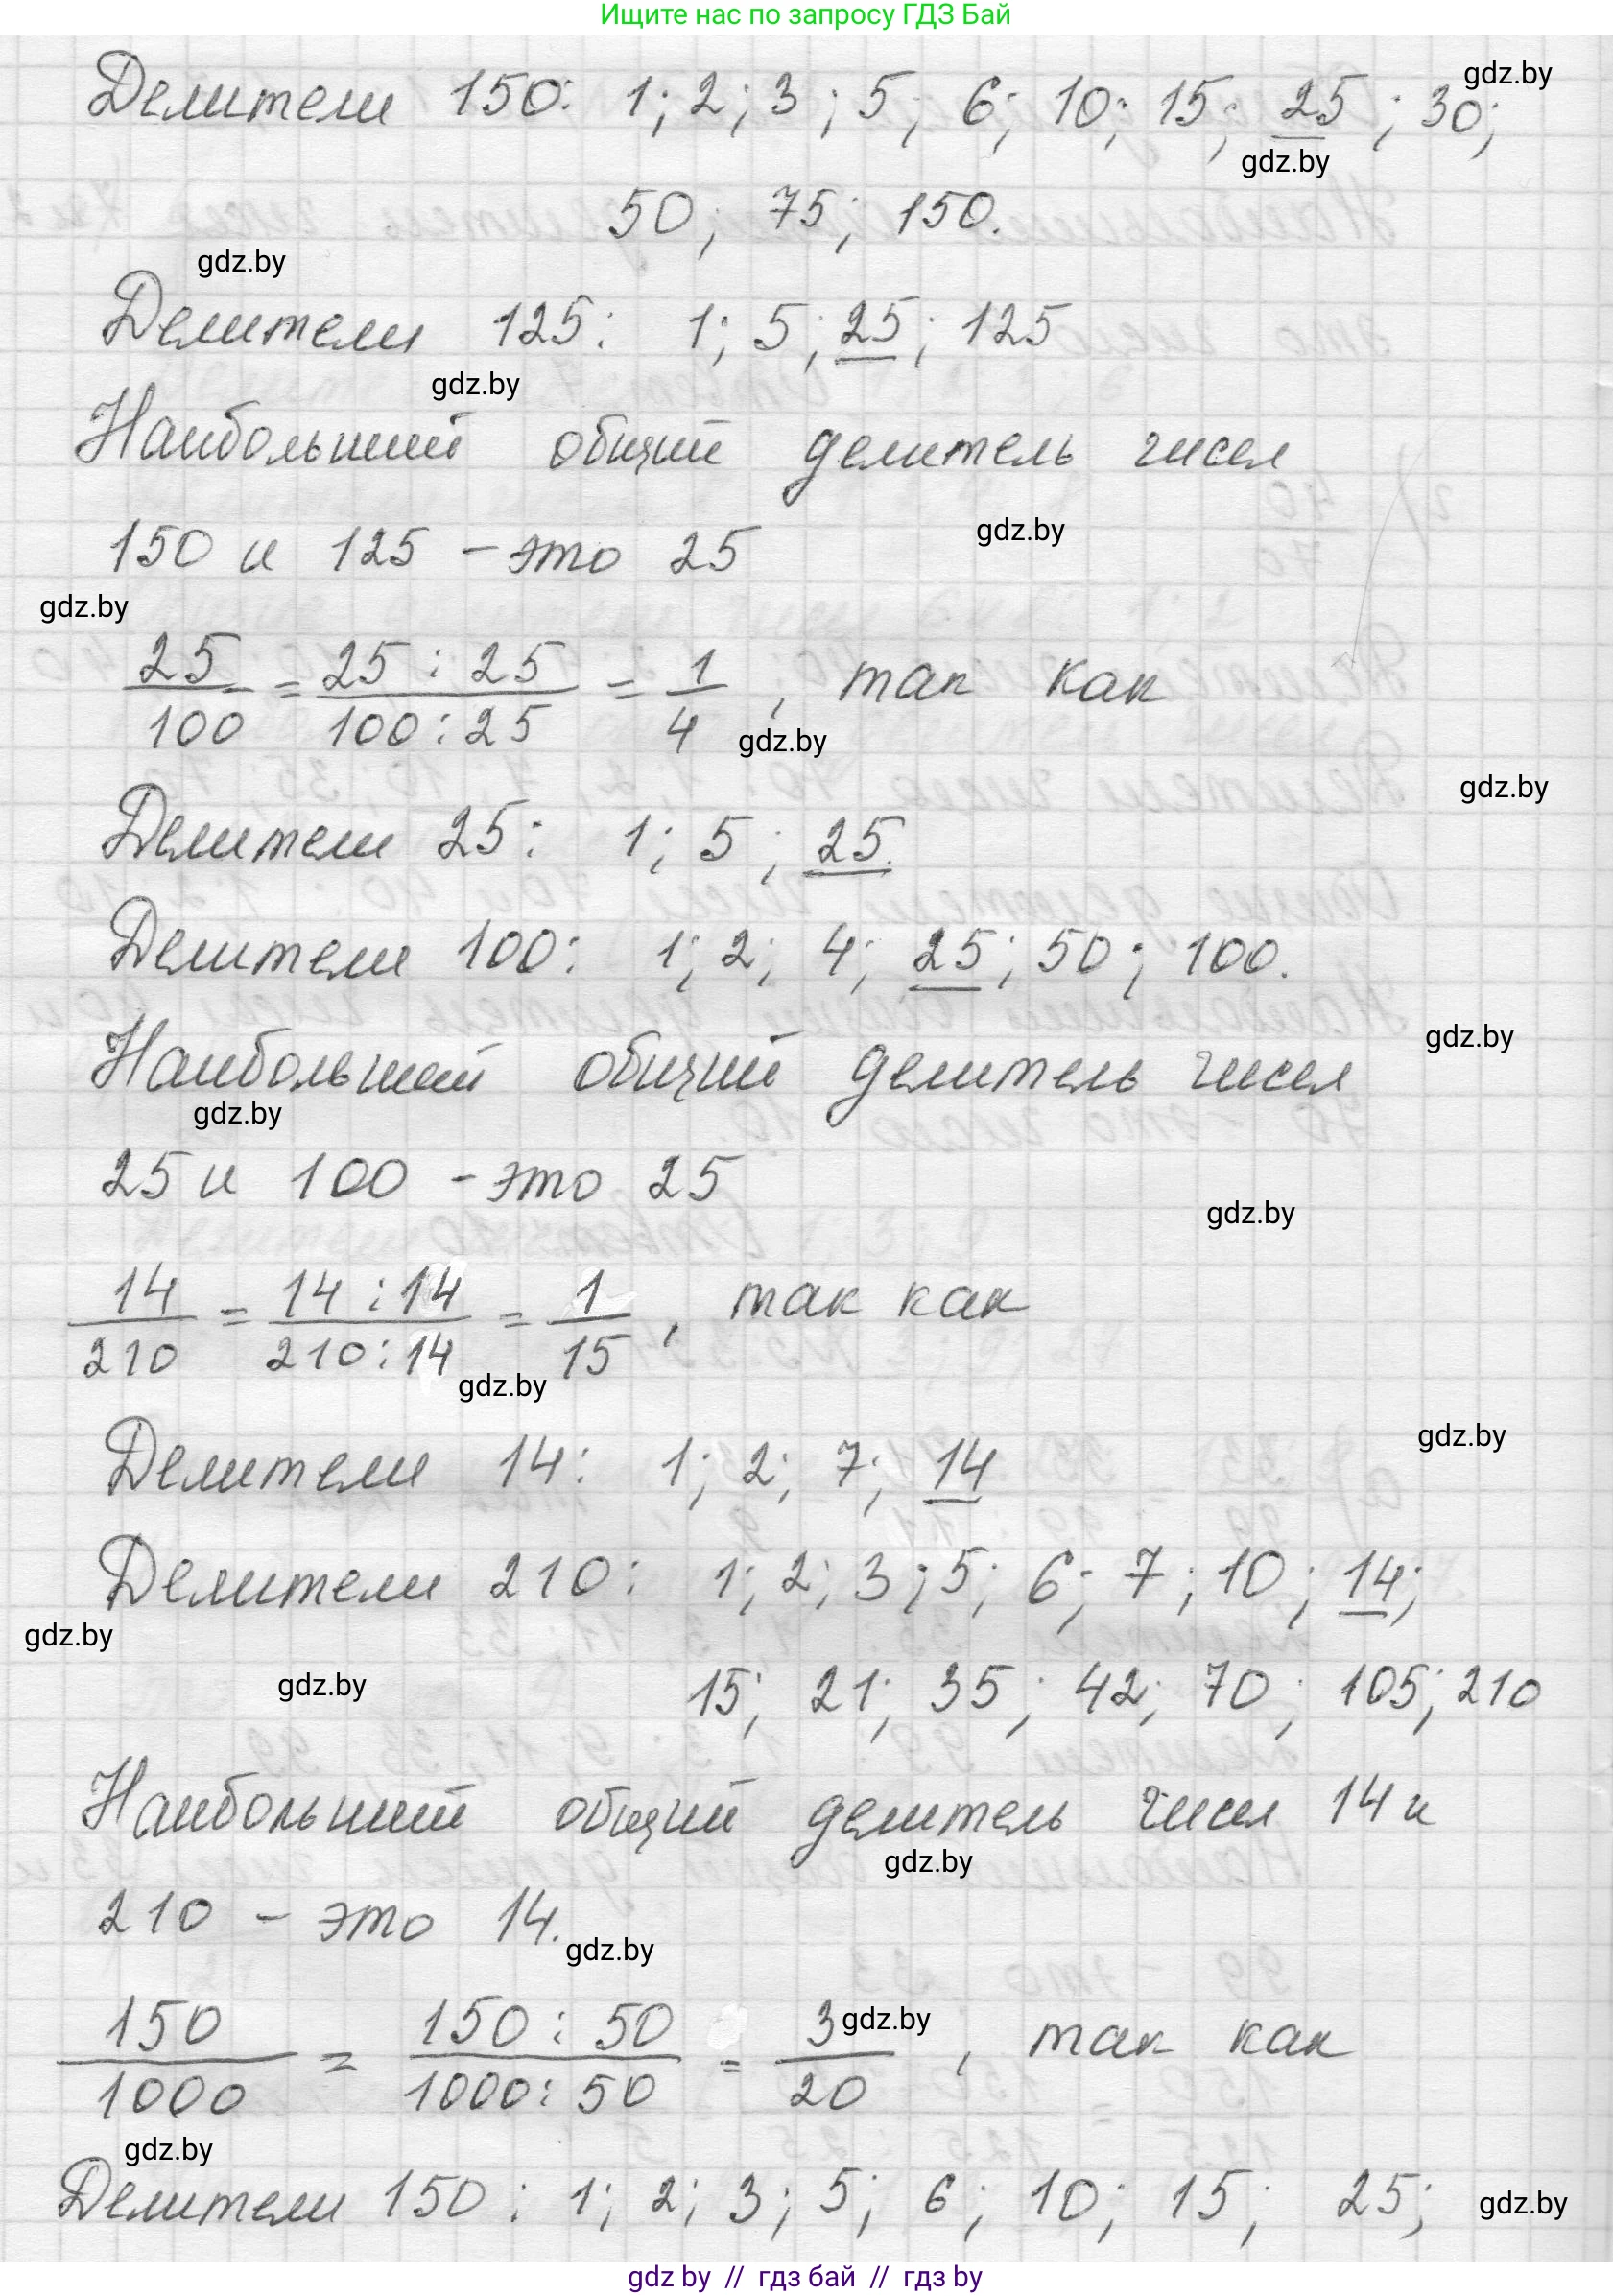 Ищите нас по запросу ГДЗ Бай
gdz.by
Делители 150: 1; 2; 3; 5; 6; 10; 15; 25; 30;
gdz.by
50; 75; 150.
gdz.by
Делители 125: 1; 5; 25; 125
gdz.by
Наибольший общий делитель чисел
gdz.by
150 и 125 – это 25
gdz.by
25/100 = 25 : 25/100 : 25 = 1/4, так как
gdz.by
gdz.by
Делители 25: 1; 5; 25.
Делители 100: 1; 2; 4; 25; 50; 100.
gdz.by
Наибольший общий делитель чисел
gdz.by
25 и 100 – это 25
gdz.by
14/210 = 14 : 14/210 : 14 = 1/15, так как
gdz.by
gdz.by
Делители 14: 1; 2; 7; 14
Делители 210: 1; 2; 3; 5; 6; 7; 10; 14;
gdz.by
gdz.by
15; 21; 35; 42; 70; 105; 210
Наибольший общий делитель чисел 14 и
gdz.by
210 – это 14.
gdz.by
150/1000 = 150 : 50/1000 : 50 = 3/20, так как
gdz.by
gdz.by
Делители 150: 1; 2; 3; 5; 6; 10; 15; 25;
gdz.by
gdz by // гдз бай // гдз by